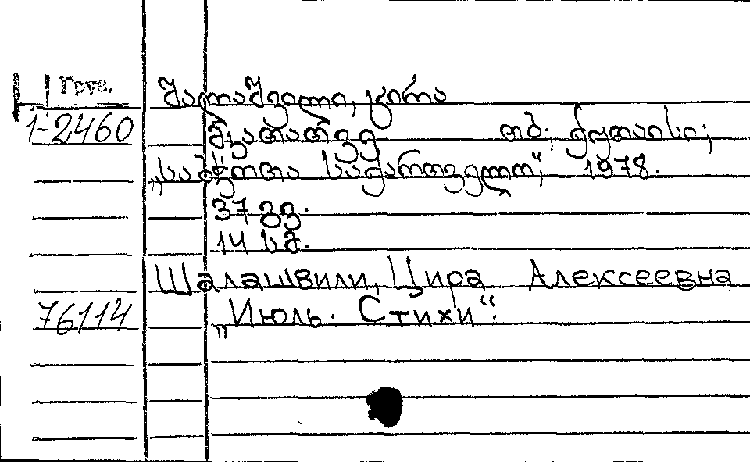 Груз.
შალაშვილი, ცირა
1-2460
მკათათვე თბ; ქუთაისი;
„საბჭოთა საქართველო“, 1978.
37 გვ.
14 სმ.
Шалашвили, Цира Алексеевна
76114
„Июль. Стихи“.